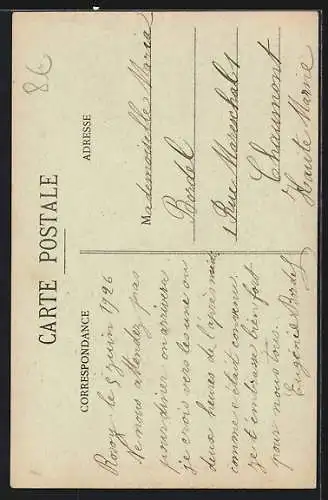 86
CARTE POSTALE
CORRESPONDANCE
ADRESSE
Rosoy le 5 juin 1926
Ne nous attendez pas
pour diner on arrivera
je crois vers les une ou
deux heures de l'après midi
comme c'était convenu.
je t'embrasse bien fort
pour nous tous.
Eugénie Bordel
Mademoiselle Maria
Bordel
1 Rue Mareschal 1
Chaumont
Haute Marne